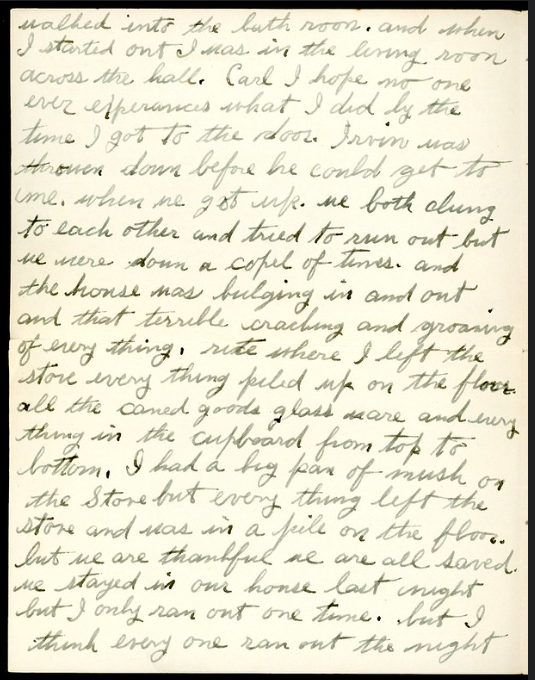 walked into the bath room. and when
I started out I was in the living room
across the hall. Carl I hope no one
ever experances what I did by the
time I got to the door. Irvin was
thrown down before he could get to
me. when we got up. we both clung
to each other and tried to run out but
we were down a copel of times. and
the house was bulging in and out
and that terrible cracking and groaning
of every thing. rite where I left the
stove every thing piled up on the floor.
all the caned goods glass ware and every
thing in the cupboard from top to
bottom. I had a big pan of mush on
the Stove but every thing left the
stove and was in a pile on the floor.
but we are thankful we are all saved.
we stayed in our house last night
but I only ran out one time. but I
think every one ran out the night